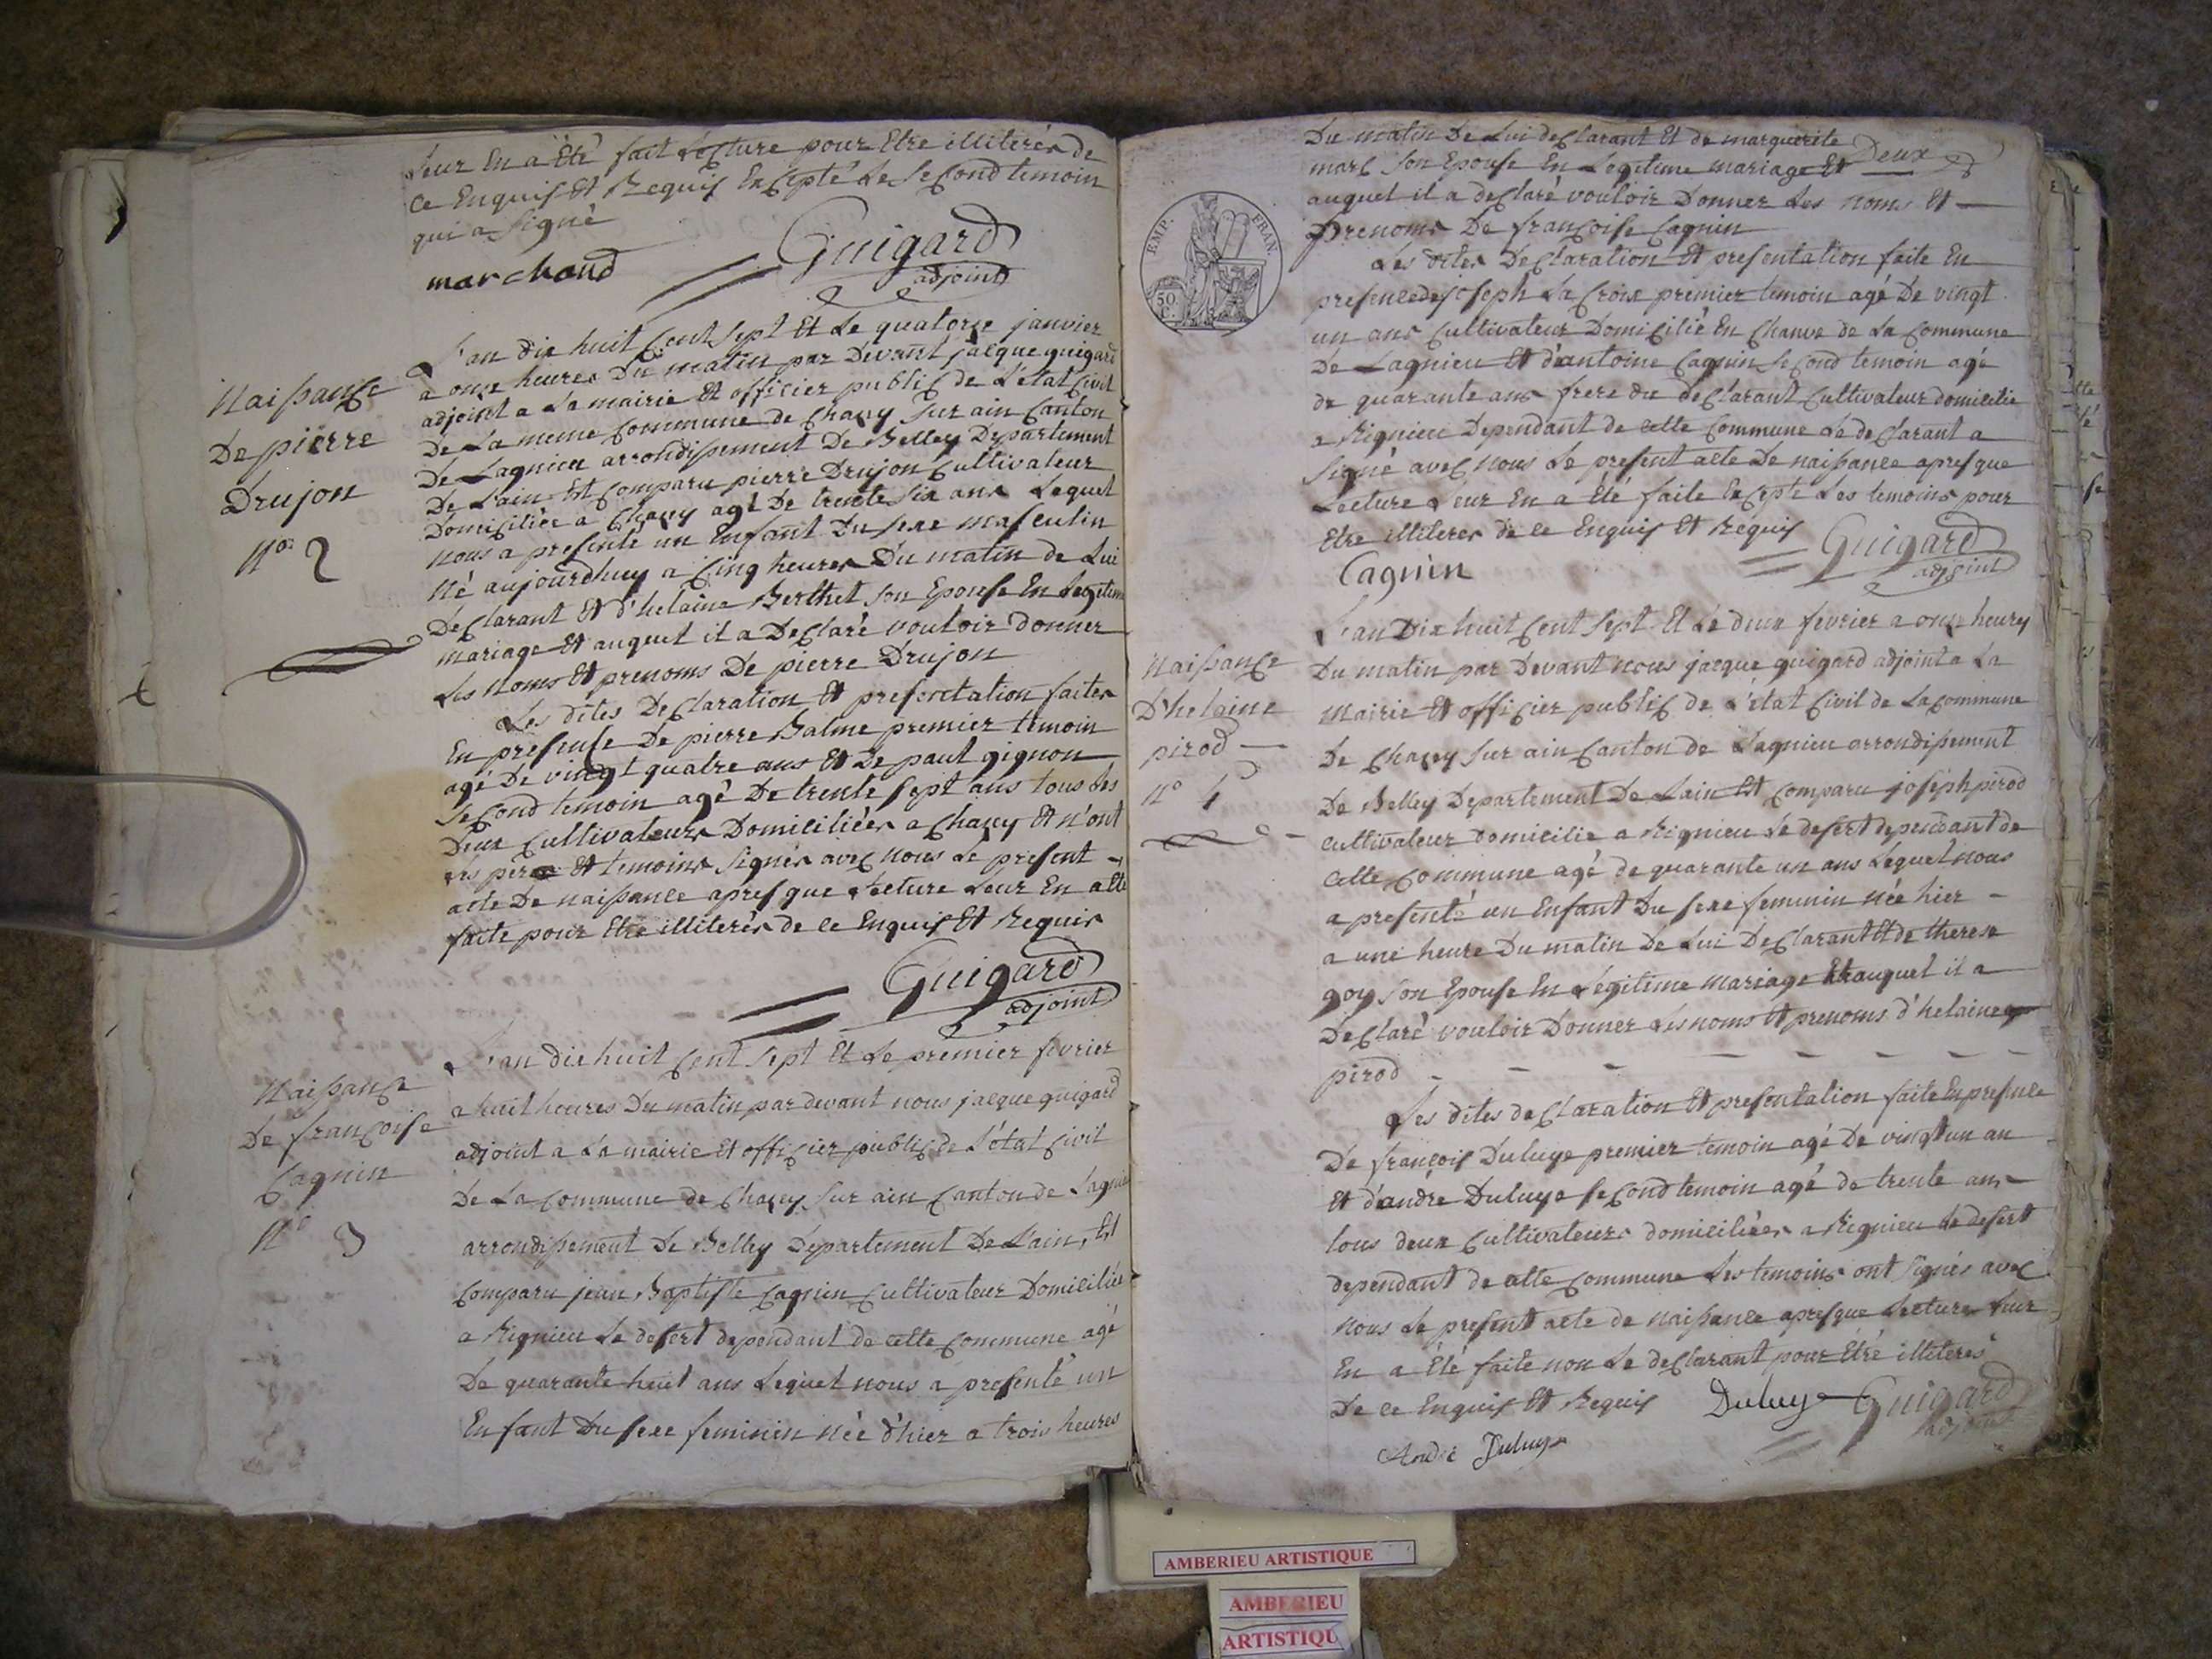 Leur En a Eté fait Lecture pour Etre illiterés de
Ce Enquis Et Requis Excepté Le Second temoin
qui a Signé
marchand
Guigard
adjoint
Naissance
De pierre
Drujon
No 2
L'an dix huit Cent Sept Et Le quatorze janvier
a onze heures Du matin par Devant jacque guigard
adjoint a La mairie Et officier public de L'état Civil
De La meme Commune de Chazey Sur ain Canton
De Lagnieu arrondissement De Belley Departement
De Lain Est Comparu pierre Drujon Cultivateur
Domiciliée a Chazey agé De trente Six ans Lequel
nous a presenté un Enfant Du sexe masculin
Né aujourdhuy a Cinq heures Du matin de Lui
Declarant Et d'helaine Berthet Son Epouse En Legitime
mariage Et auquel il a Declaré vouloir donner
Les Noms Et prenoms De pierre Drujon
Les dites Declaration Et presentation faites
En presence De pierre Balme premier temoin
agé De vingt quatre ans Et De paul gignon
Second temoin agé De trente Sept ans tous Les
Deux Cultivateurs Domiciliées a Chazey Et n'ont
Les pere Et temoins Signés avec nous Le present
acte De naissance apres que Lecture Leur En a Eté
faite pour Etre illiterés de ce Enquis Et Requis
Guigard
adjoint
Naissance
De françoise
Cagnin
No 3
L'an dix huit Cent Sept Et Le premier fevrier
a huit heures Du matin par devant nous jacque guigard
adjoint a La mairie Et officier public de L'état Civil
De La Commune de Chazey Sur ain Canton de Lagnieu
arrondissement De Belley Departement De Lain, Est
Comparu jean Baptiste Cagnin Cultivateur Domiciliée
a Rignieu Le desert dependant de cette Commune agé
De quarante huit ans Lequel nous a presenté un
Enfant Du sexe feminin Née d'hier a trois heures
Deux
Du matin De Lui declarant Et de marguerite
marc Son Epouse En Legitime mariage Et
auquel il a declaré vouloir Donner Les noms Et
prenoms De françoise Cagnin
EMP. FRAN.
50
C.
Les dites Declaration Et presentation faite En
presence de joseph La Croix premier temoin agé De vingt
un ans Cultivateur Domiciliée En Chanve de La Commune
De Lagnieu Et d'antoine Cagnin Second temoin agé
de quarante ans frere du declarant Cultivateur domicilié
a Rignieu Dependant de cette Commune Le declarant a
Signé avec nous Le present acte De naissance apres que
Lecture Leur En a Eté faite Excepté Les temoins pour
Etre illiterés de ce Enquis Et Requis
Cagnin
Guigard
adjoint
Naissance
D'helaine
pirod
No 4
L'an Dix huit Cent Sept Et Le deux fevrier a onze heures
Du matin par Devant nous jacque guigard adjoint a La
Mairie Et officier public de L'état Civil de La Commune
De Chazey Sur ain Canton de Lagnieu arrondissement
De Belley Departement De Lain Est Comparu joseph pirod
Cultivateur Domicilié a Rignieu Le desert dependant de
cette Commune agé de quarante un ans Lequel nous
a presenté un Enfant Du sexe feminin née hier
a une heure Du matin De Lui Declarant Et de therese
goy Son Epouse En Legitime mariage Et auquel il a
Declaré vouloir Donner Les noms Et prenoms d'helaine
pirod
Les dites declaration Et presentation faite En presence
De françois Duluye premier temoin agé De vingt un an
Et d'andre Duluye Second temoin agé de trente ans
tous deux Cultivateurs domiciliées a Rignieu Le desert
dependant de cette Commune Les temoins ont Signés avec
nous Le present acte de naissance apres que Lecture Leur
En a Eté faite non Le declarant pour Etre illiteré
De ce Enquis Et Requis
Duluye
Guigard
adjoint
André Duluye
AMBERIEU ARTISTIQUE
AMBERIEU
ARTISTIQU